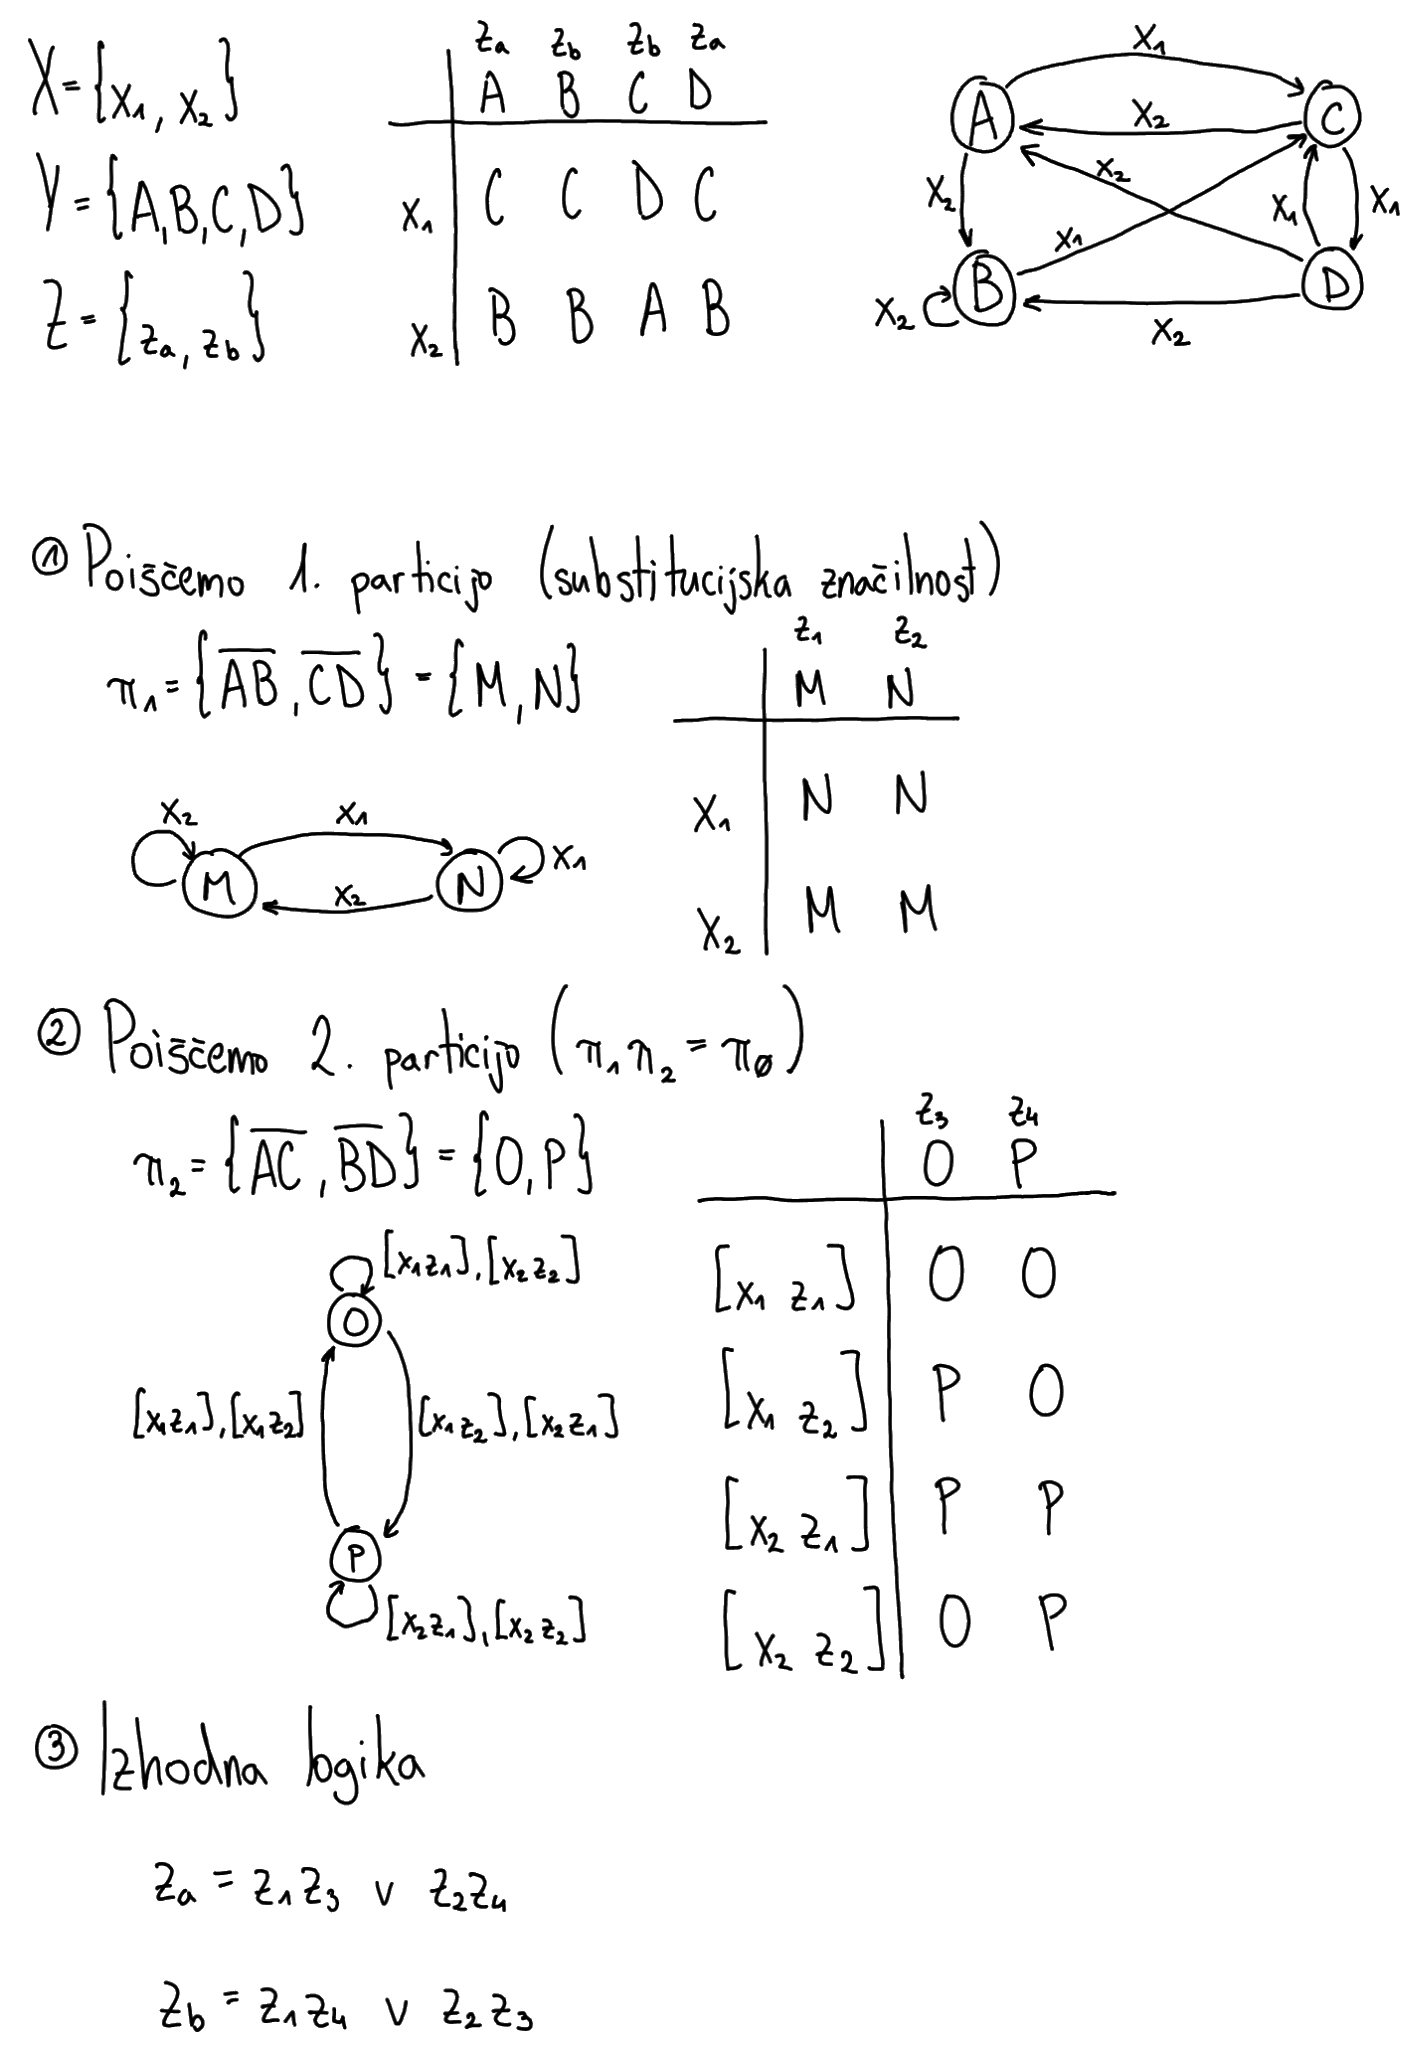 X = {x₁, x₂}
Y = {A, B, C, D}
Z = {z_a, z_b}
z_a z_b z_b z_a
A B C D
x₁ C C D C
x₂ B B A B
x₁
A x₂ C
x₂ x₂ x₁ x₁
x₁
x₂ B D
x₂
① Poiščemo 1. particijo (substitucijska značilnost)
π₁ = {AB, CD} = {M, N}
z₁ z₂
M N
x₁ N N
x₂ M M
x₂ x₁
M N x₁
x₂
② Poiščemo 2. particijo (π₁π₂ = πø)
π₂ = {AC, BD} = {O, P}
z₃ z₄
O P
[x₁ z₁] O O
[x₁ z₂] P O
[x₂ z₁] P P
[x₂ z₂] O P
[x₁z₁], [x₂z₂]
O
[x₁z₁], [x₁z₂] [x₁z₂], [x₂z₁]
P
[x₂z₁], [x₂z₂]
③ Izhodna logika
z_a = z₁z₃ ∨ z₂z₄
z_b = z₁z₄ ∨ z₂z₃